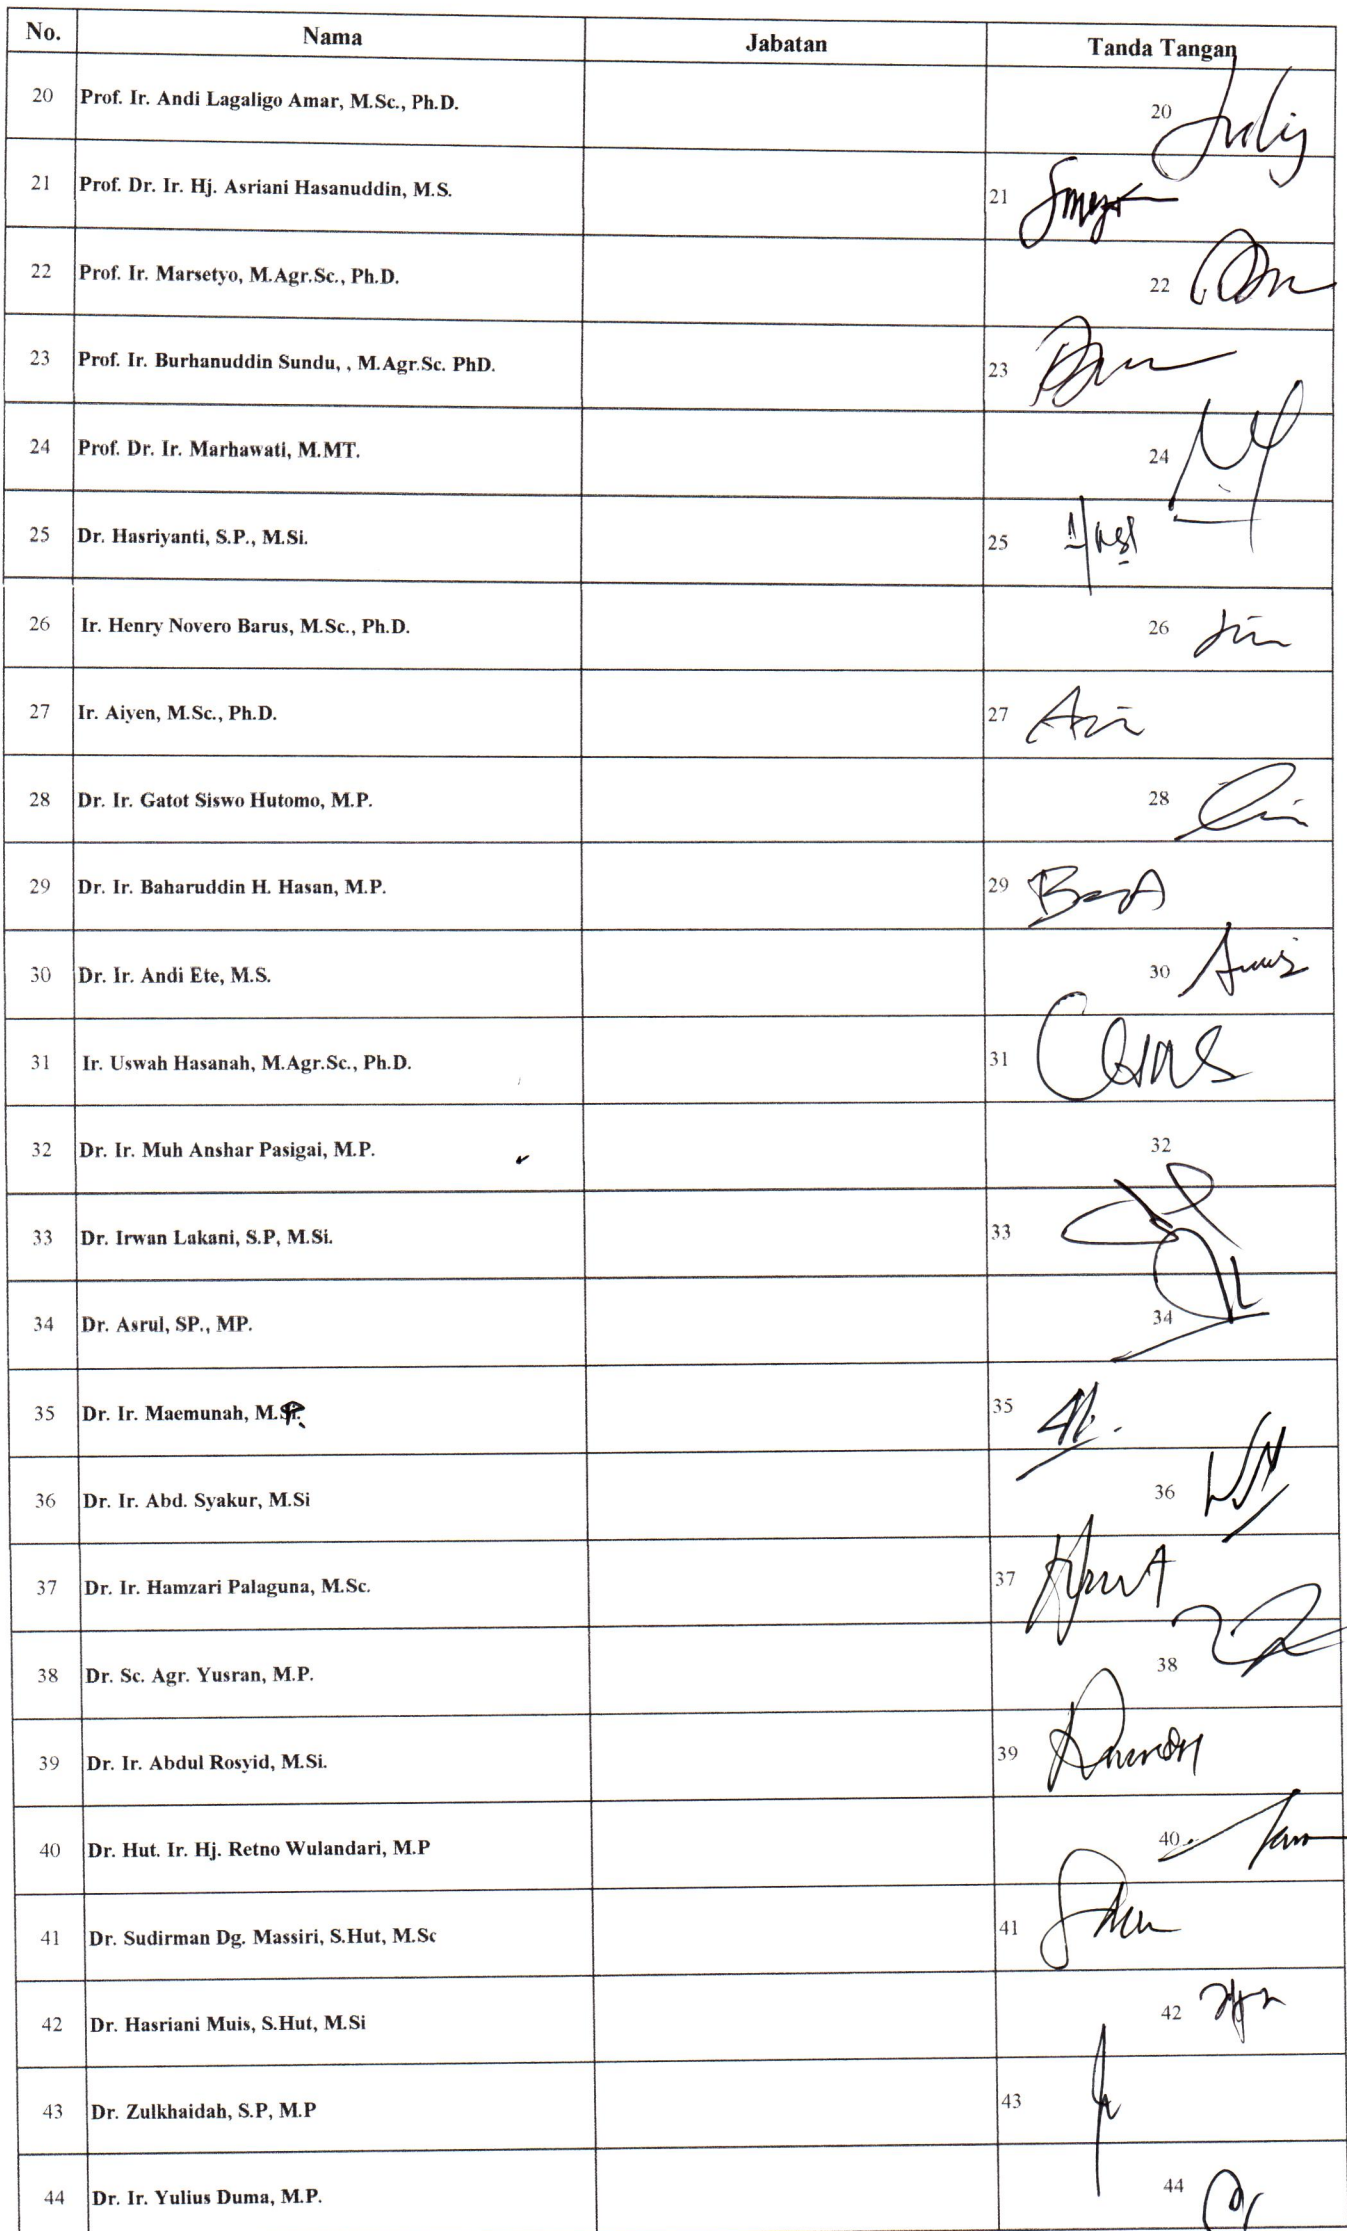 No. Nama Jabatan Tanda Tangan
20 Prof. Ir. Andi Lagaligo Amar, M.Sc., Ph.D. 20
21 Prof. Dr. Ir. Hj. Asriani Hasanuddin, M.S. 21
22 Prof. Ir. Marsetyo, M.Agr.Sc., Ph.D. 22
23 Prof. Ir. Burhanuddin Sundu, , M.Agr.Sc. PhD. 23
24 Prof. Dr. Ir. Marhawati, M.MT. 24
25 Dr. Hasriyanti, S.P., M.Si. 25
26 Ir. Henry Novero Barus, M.Sc., Ph.D. 26
27 Ir. Aiyen, M.Sc., Ph.D. 27
28 Dr. Ir. Gatot Siswo Hutomo, M.P. 28
29 Dr. Ir. Baharuddin H. Hasan, M.P. 29
30 Dr. Ir. Andi Ete, M.S. 30
31 Ir. Uswah Hasanah, M.Agr.Sc., Ph.D. 31
32 Dr. Ir. Muh Anshar Pasigai, M.P. 32
33 Dr. Irwan Lakani, S.P, M.Si. 33
34 Dr. Asrul, SP., MP. 34
35 Dr. Ir. Maemunah, M.P. 35
36 Dr. Ir. Abd. Syakur, M.Si 36
37 Dr. Ir. Hamzari Palaguna, M.Sc. 37
38 Dr. Sc. Agr. Yusran, M.P. 38
39 Dr. Ir. Abdul Rosyid, M.Si. 39
40 Dr. Hut. Ir. Hj. Retno Wulandari, M.P 40
41 Dr. Sudirman Dg. Massiri, S.Hut, M.Sc 41
42 Dr. Hasriani Muis, S.Hut, M.Si 42
43 Dr. Zulkhaidah, S.P, M.P 43
44 Dr. Ir. Yulius Duma, M.P. 44